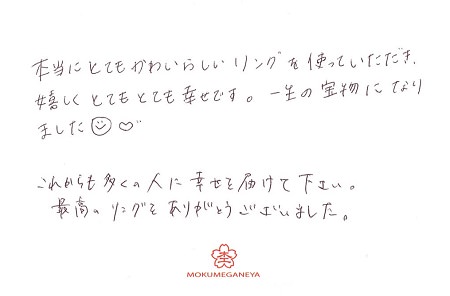 本当にとてもかわいらしいリングを使っていただき、
嬉しくとてもとても幸せです。一生の宝物になり
ました☺♡
これからも多くの人に幸せを届けて下さい。
最高のリングをありがとうございました。
杢
MOKUMEGANEYA